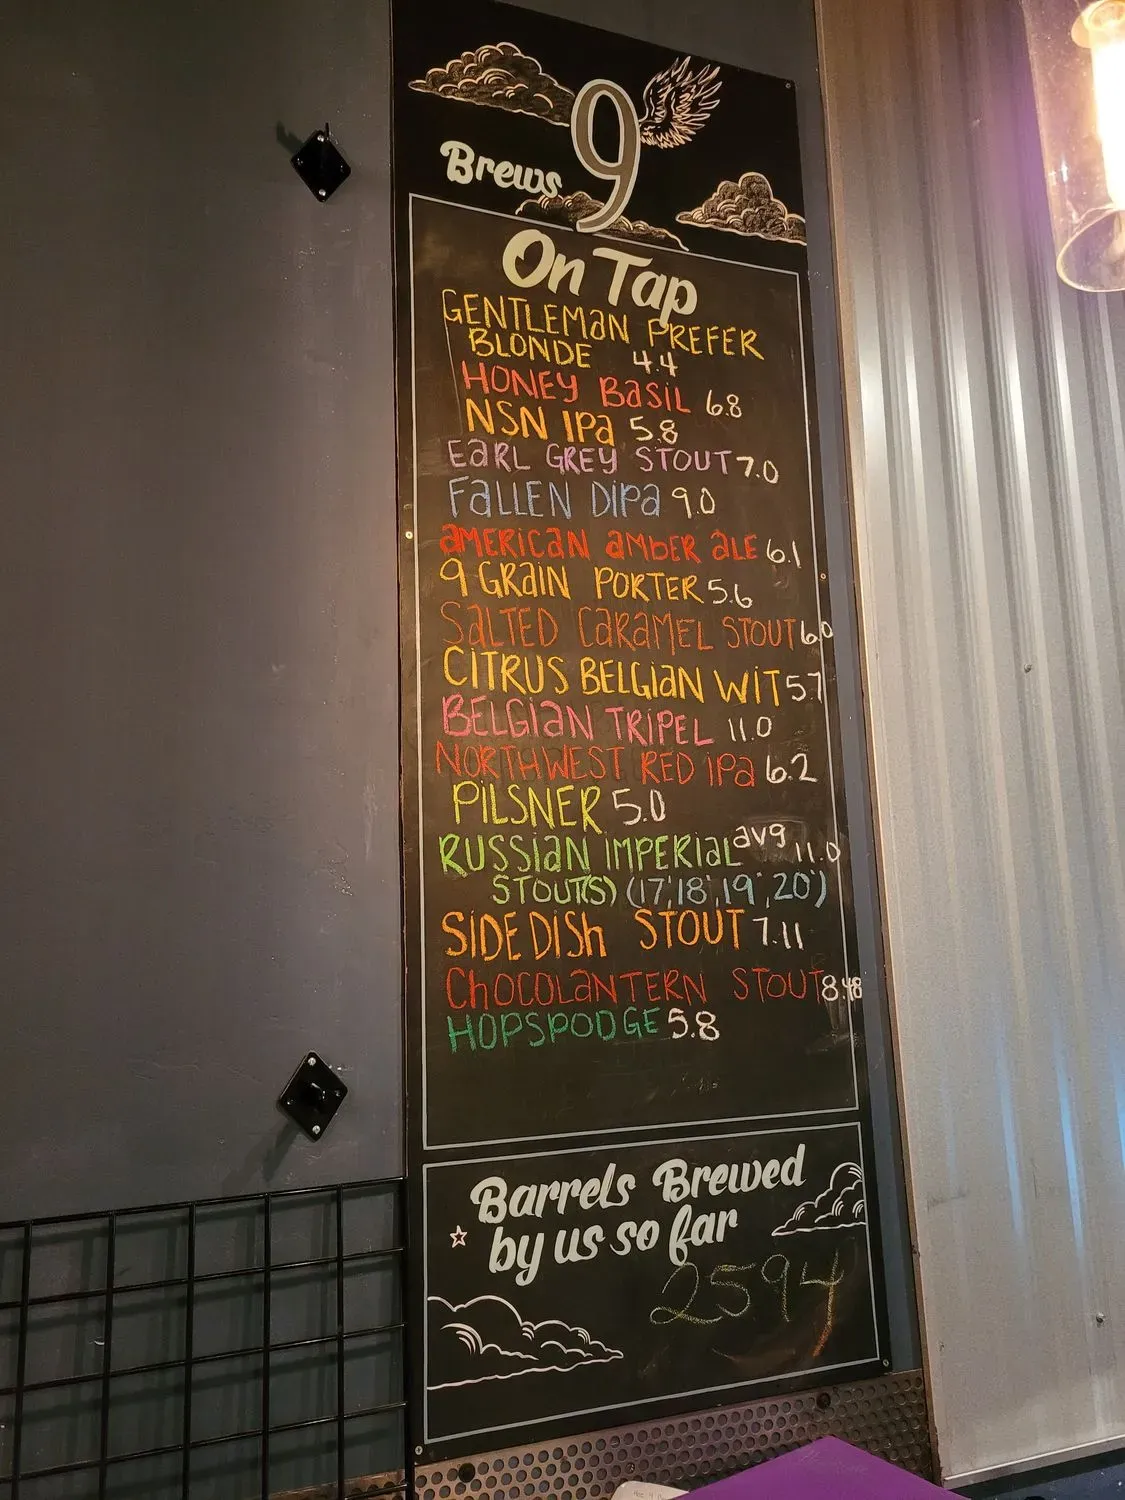 Brews 9
On Tap
GENTLEMaN PREFER
BLONDE 4.4
HONEY BaSiL 6.8
NSN IPa 5.8
EaRL GREY STOUT 7.0
FaLLEN DiPa 9.0
aMERICaN aMbER aLE 6.1
9 GRaiN PORTER 5.6
SaLTED CaRaMEL STOUT 6.0
CiTRUS BELGiaN WiT 5.7
BELGiaN TRiPEL 11.0
NORTHWEST RED iPa 6.2
PiLSNER 5.0
RUSSiaN iMPERiaL avg 11.0
STOUT(S) (17',18',19',20')
SiDE DiSh STOUT 7.11
ChOCOLaNTERN STOUT 8.48
HOPSPODGE 5.8
Barrels Brewed
by us so far
2594